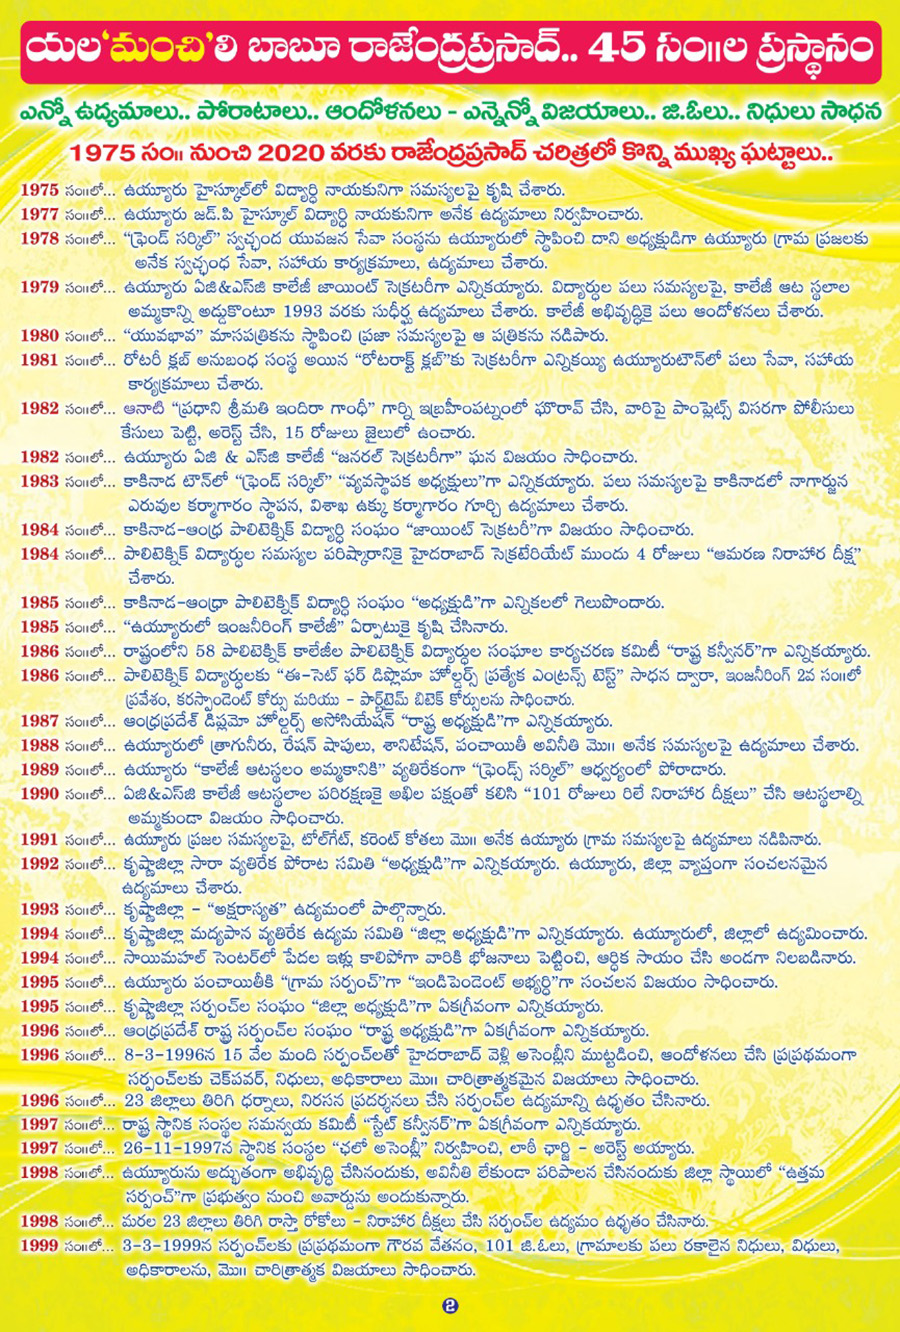 యల‘మంచి’లి బాబూ రాజేంద్రప్రసాద్.. 45 సం॥ల ప్రస్థానం
ఎన్నో ఉద్యమాలు.. పోరాటాలు.. ఆందోళనలు - ఎన్నెన్నో విజయాలు.. జి.ఓలు.. నిధులు సాధన
1975 సం॥ నుంచి 2020 వరకు రాజేంద్రప్రసాద్ చరిత్రలో కొన్ని ముఖ్య ఘట్టాలు..
1975 సం॥లో... ఉయ్యూరు హైస్కూల్‌లో విద్యార్ధి నాయకునిగా సమస్యలపై కృషి చేశారు.
1977 సం॥లో... ఉయ్యూరు జడ్.పి హైస్కూల్ విద్యార్ధి నాయకునిగా అనేక ఉద్యమాలు నిర్వహించారు.
1978 సం॥లో... “ఫ్రెండ్ సర్కిల్” స్వచ్ఛంద యువజన సేవా సంస్థను ఉయ్యూరులో స్థాపించి దాని అధ్యక్షుడిగా ఉయ్యూరు గ్రామ ప్రజలకు
అనేక స్వచ్ఛంధ సేవా, సహాయ కార్యక్రమాలు, ఉద్యమాలు చేశారు.
1979 సం॥లో... ఉయ్యూరు ఏజి&ఎస్‌జి కాలేజీ జాయింట్ సెక్రటరీగా ఎన్నికయ్యారు. విద్యార్ధుల పలు సమస్యలపై, కాలేజీ ఆట స్థలాల
అమ్మకాన్ని అడ్డుకొంటూ 1993 వరకు సుధీర్ఘ ఉద్యమాలు చేశారు. కాలేజీ అభివృద్ధికై పలు ఆందోళనలు చేశారు.
1980 సం॥లో... “యువభావ” మాసపత్రికను స్థాపించి ప్రజా సమస్యలపై ఆ పత్రికను నడిపారు.
1981 సం॥లో... రోటరీ క్లబ్ అనుబంధ సంస్థ అయిన “రోటరాక్ట్ క్లబ్”కు సెక్రటరీగా ఎన్నికయ్యి ఉయ్యూరుటౌన్‌లో పలు సేవా, సహాయ
కార్యక్రమాలు చేశారు.
1982 సం॥లో... ఆనాటి “ప్రధాని శ్రీమతి ఇందిరా గాంధీ” గార్ని ఇబ్రహీంపట్నంలో ఘొరావ్ చేసి, వారిపై పాంప్లెట్స్ విసరగా పోలీసులు
కేసులు పెట్టి, అరెస్ట్ చేసి, 15 రోజులు జైలులో ఉంచారు.
1982 సం॥లో... ఉయ్యూరు ఏజి & ఎస్‌జి కాలేజీ “జనరల్ సెక్రటరీగా” ఘన విజయం సాధించారు.
1983 సం॥లో... కాకినాడ టౌన్‌లో “ఫ్రెండ్ సర్కిల్” “వ్యవస్థాపక అధ్యక్షులు”గా ఎన్నికయ్యారు. పలు సమస్యలపై కాకినాడలో నాగార్జున
ఎరువుల కర్మాగారం స్థాపన, విశాఖ ఉక్కు కర్మాగారం గూర్చి ఉద్యమాలు చేశారు.
1984 సం॥లో... కాకినాడ-ఆంధ్ర పాలిటెక్నిక్ విద్యార్ధి సంఘం “జాయింట్ సెక్రటరీ”గా విజయం సాధించారు.
1984 సం॥లో... పాలిటెక్నిక్ విద్యార్ధుల సమస్యల పరిష్కారానికై హైదరాబాద్ సెక్రటేరియేట్ ముందు 4 రోజులు “ఆమరణ నిరాహార దీక్ష”
చేశారు.
1985 సం॥లో... కాకినాడ-ఆంధ్రా పాలిటెక్నిక్ విద్యార్ధి సంఘం “అధ్యక్షుడి”గా ఎన్నికలలో గెలుపొందారు.
1985 సం॥లో... “ఉయ్యూరులో ఇంజనీరింగ్ కాలేజీ” ఏర్పాటుకై కృషి చేసినారు.
1986 సం॥లో... రాష్ట్రంలోని 58 పాలిటెక్నిక్ కాలేజీల పాలిటెక్నిక్ విద్యార్ధుల సంఘాల కార్యచరణ కమిటీ “రాష్ట్ర కన్వీనర్”గా ఎన్నికయ్యారు.
1986 సం॥లో... పాలిటెక్నిక్ విద్యార్ధులకు “ఈ-సెట్ ఫర్ డిప్లొమా హోల్డర్స్ ప్రత్యేక ఎంట్రన్స్ టెస్ట్” సాధన ద్వారా, ఇంజనీరింగ్ 2వ సం॥లో
ప్రవేశం, కరస్పాండెంట్ కోర్సు మరియు - పార్ట్‌టైమ్ బిటెక్ కోర్సులను సాధించారు.
1987 సం॥లో... ఆంధ్రప్రదేశ్ డిప్లమో హోల్డర్స్ అసోసియేషన్ “రాష్ట్ర అధ్యక్షుడి”గా ఎన్నికయ్యారు.
1988 సం॥లో... ఉయ్యూరులో త్రాగునీరు, రేషన్ షాపులు, శానిటేషన్, పంచాయితీ అవినీతి మొ॥ అనేక సమస్యలపై ఉద్యమాలు చేశారు.
1989 సం॥లో... ఉయ్యూరు “కాలేజీ ఆటస్థలం అమ్మకానికి” వ్యతిరేకంగా “ఫ్రెండ్స్ సర్కిల్” ఆధ్వర్యంలో పోరాడారు.
1990 సం॥లో... ఏజి&ఎస్‌జి కాలేజీ ఆటస్థలాల పరిరక్షణకై అఖిల పక్షంతో కలిసి “101 రోజులు రిలే నిరాహార దీక్షలు” చేసి ఆటస్థలాల్ని
అమ్మకుండా విజయం సాధించారు.
1991 సం॥లో... ఉయ్యూరు ప్రజల సమస్యలపై, టోల్‌గేట్, కరెంట్ కోతలు మొ॥ అనేక ఉయ్యూరు గ్రామ సమస్యలపై ఉద్యమాలు నడిపినారు.
1992 సం॥లో... కృష్ణాజిల్లా సారా వ్యతిరేక పోరాట సమితి “అధ్యక్షుడి”గా ఎన్నికయ్యారు. ఉయ్యూరు, జిల్లా వ్యాప్తంగా సంచలనమైన
ఉద్యమాలు చేశారు.
1993 సం॥లో... కృష్ణాజిల్లా - “అక్షరాస్యత” ఉద్యమంలో పాల్గొన్నారు.
1994 సం॥లో... కృష్ణాజిల్లా మద్యపాన వ్యతిరేక ఉద్యమ సమితి “జిల్లా అధ్యక్షుడి”గా ఎన్నికయ్యారు. ఉయ్యూరులో, జిల్లాలో ఉద్యమించారు.
1994 సం॥లో... సాయిమహల్ సెంటర్‌లో పేదల ఇళ్లు కాలిపోగా వారికి భోజనాలు పెట్టించి, ఆర్ధిక సాయం చేసి అండగా నిలబడినారు.
1995 సం॥లో... ఉయ్యూరు పంచాయితీకి “గ్రామ సర్పంచ్”గా “ఇండిపెండెంట్ అభ్యర్ధి”గా సంచలన విజయం సాధించారు.
1995 సం॥లో... కృష్ణాజిల్లా సర్పంచ్‌ల సంఘం “జిల్లా అధ్యక్షుడి”గా ఏకగ్రీవంగా ఎన్నికయ్యారు.
1996 సం॥లో... ఆంధ్రప్రదేశ్ రాష్ట్ర సర్పంచ్‌ల సంఘం “రాష్ట్ర అధ్యక్షుడి”గా ఏకగ్రీవంగా ఎన్నికయ్యారు.
1996 సం॥లో... 8-3-1996న 15 వేల మంది సర్పంచ్‌లతో హైదరాబాద్ వెళ్లి అసెంబ్లీని ముట్టడించి, ఆందోళనలు చేసి ప్రప్రథమంగా
సర్పంచ్‌లకు చెక్‌పవర్, నిధులు, అధికారాలు మొ॥ చారిత్రాత్మకమైన విజయాలు సాధించారు.
1996 సం॥లో... 23 జిల్లాలు తిరిగి ధర్నాలు, నిరసన ప్రదర్శనలు చేసి సర్పంచ్‌ల ఉద్యమాన్ని ఉధృతం చేసినారు.
1997 సం॥లో... రాష్ట్ర స్థానిక సంస్థల సమన్వయ కమిటీ “స్టేట్ కన్వీనర్”గా ఏకగ్రీవంగా ఎన్నికయ్యారు.
1997 సం॥లో... 26-11-1997న స్థానిక సంస్థల “ఛలో అసెంబ్లీ” నిర్వహించి, లాఠీ ఛార్జి - అరెస్ట్ అయ్యారు.
1998 సం॥లో... ఉయ్యూరును అద్భుతంగా అభివృద్ధి చేసినందుకు, అవినీతి లేకుండా పరిపాలన చేసినందుకు జిల్లా స్థాయిలో “ఉత్తమ
సర్పంచ్”గా ప్రభుత్వం నుంచి అవార్డును అందుకున్నారు.
1998 సం॥లో... మరల 23 జిల్లాలు తిరిగి రాస్తా రోకోలు - నిరాహార దీక్షలు చేసి సర్పంచ్‌ల ఉద్యమం ఉధృతం చేసినారు.
1999 సం॥లో... 3-3-1999న సర్పంచ్‌లకు ప్రప్రథమంగా గౌరవ వేతనం, 101 జి.ఓలు, గ్రామాలకు పలు రకాలైన నిధులు, విధులు,
అధికారాలను, మొ॥ చారిత్రాత్మక విజయాలు సాధించారు.
2